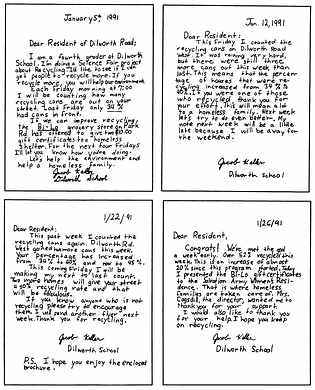 January 5th 1991
Dear Resident of Dilworth Road:
I am a fourth grader at Dilworth
School. I'm doing a Science Fair project
about Recycling. I'd like to see if I can
get people to recycle more. If you
recycle more, you will help our environment.
Each Friday morning at 7:00
I will be counting how many
recycling cans are out on your
street. Last Friday only 34%
had cans in front.
If we can improve recycling,
the Bi-Lo grocery store on Park
Rd. has offered to give two $10.00
gift certificates to a homeless
Shelter. For the next four Fridays
I'll let you know how you're doing.
Let's help the environment and
help a homeless family.
Jacob Keller
Dilworth School
Jan. 12, 1991
Dear Resident:
This Friday I counted the
recycling cans on Dilworth Road
West. It was raining very hard,
but there were still three
more cans out this week than
last. This means that the percent
age of houses that were re-
cycling increased from 34% to
40%. If you were one of those
who recycled, thank you for
your effort. This will mean a lot
to a homeless family. Next week
let's try to do even better. My
note next week will be a little
late because I will be away for
the weekend.
Jacob Keller
Dilworth School
1/22/91
Dear Resident:
This past week I counted the
recycling cans again. Dilworth Rd.
West gained more cans this week.
Your percentage has increased
from 34% to 40% and now to 45%.
This coming Friday I will be
making my next to last count.
Two more homes will give your street
a 50% recycling rate and that
will be fabulous.
If you know anyone who is not
recycling please try to encourage
them. I will send another flyer next
week. Thank you for recycling.
Jacob Keller
Dilworth School
P.S. I hope you enjoy the enclosed
brochure.
1/26/91
Dear Resident,
Congrats! We've met the goal
a week early. Over 52% recycled this
week. This is an increase of almost
20% since this program started. Today
I presented the Bi-Lo gift certificates
to the Salvation Army Women's Resi-
dence. That is where homeless
families are taken care of. Mrs.
Cogsdil, the director, wanted me to
thank you for your support.
I would also like to thank
you for your help. I hope you keep
on recycling.
Jacob Keller
Dilworth School